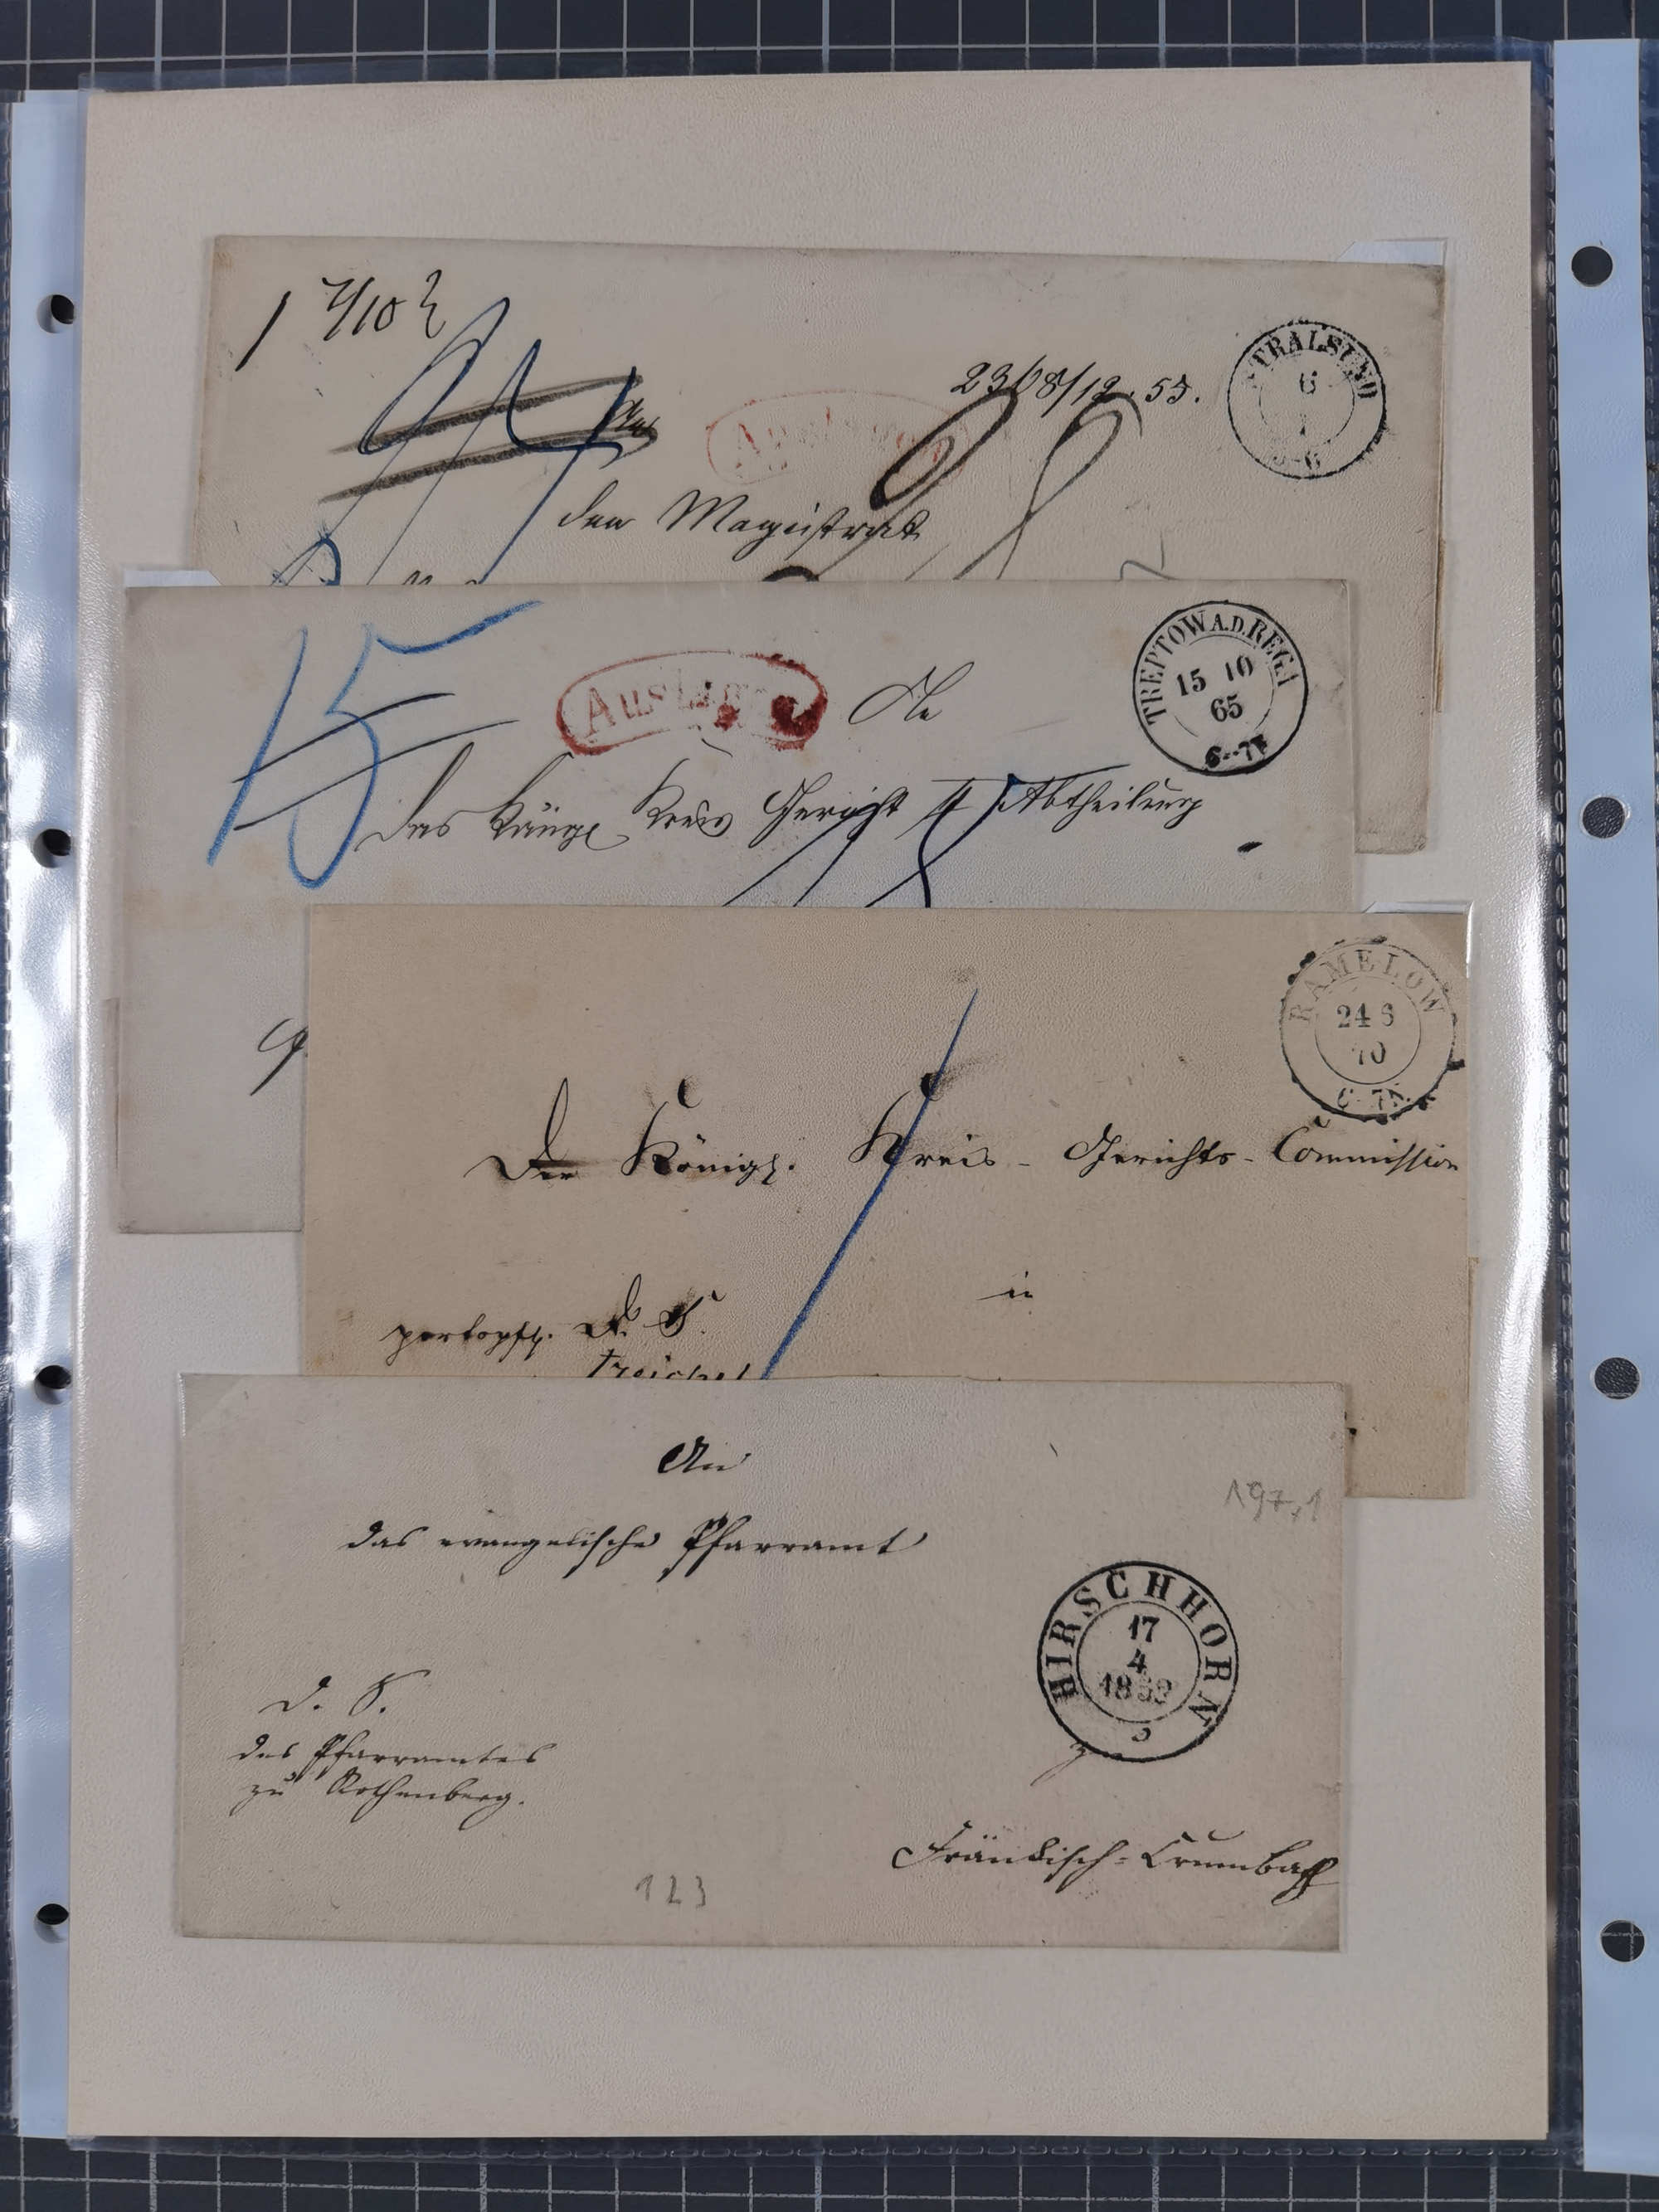 2308/12.55.
STRALSUND
6
1
5-6
An
Auslagen
den Magistrat
15
Auslagen
An
TREPTOW A.D. REGA
15 10
65
6-7N
das Königl Kreis Gericht II Abtheilung
RAMELOW
24 6
70
6-7N
Der Königl. Kreis-Gerichts-Commission
in
portopfl. D. S.
An
197,1
das evangelische Pfarramt
HIRSCHHORN
17
4
18
3
D. S.
des Pfarramtes
zu Rothenberg.
Fränkisch-Crumbach
123